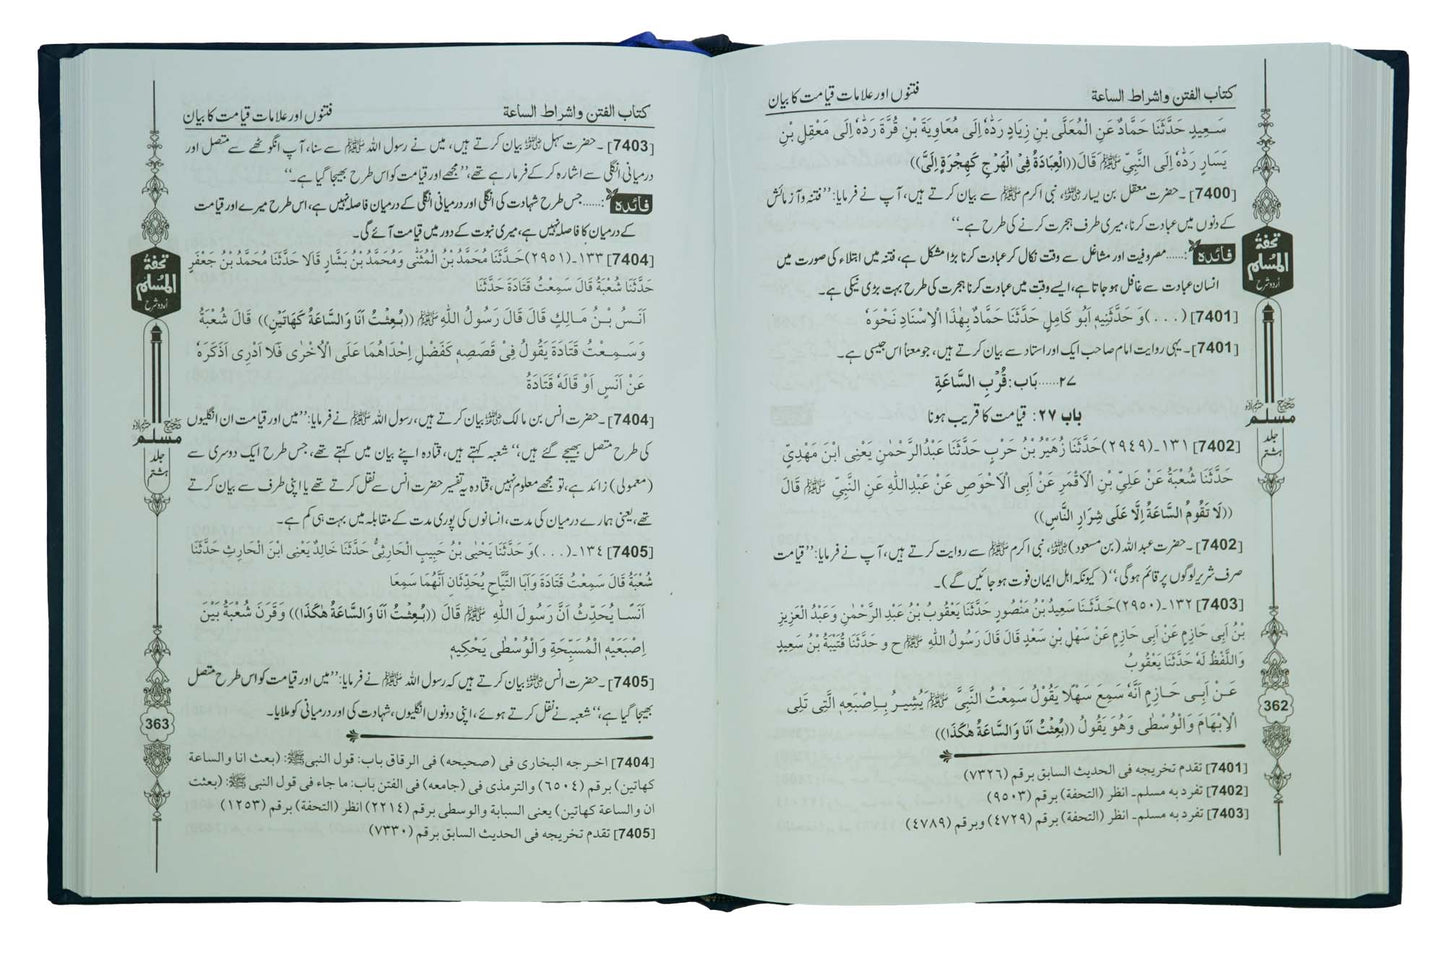 كتاب الفتن واشراط الساعة
فتنوں اور علامات قیامت کا بیان
سَعِيدٍ حَدَّثَنَا حَمَّادٌ عَنِ الْمُعَلَّى بْنِ زِيَادٍ رَدَّهُ إِلَى مُعَاوِيَةَ بْنِ قُرَّةَ رَدَّهُ إِلَى مَعْقِلِ بْنِ
يَسَارٍ رَدَّهُ إِلَى النَّبِيِّ ﷺ قَالَ ((الْعِبَادَةُ فِي الْهَرْجِ كَهِجْرَةٍ إِلَيَّ))
[7400]۔حضرت معقل بن یسار رضی اللہ عنہ، نبی اکرم ﷺ سے بیان کرتے ہیں، آپ نے فرمایا: ’’فتنہ و آزمائش
کے دنوں میں عبادت کرنا، میری طرف ہجرت کرنے کی طرح ہے۔‘‘
فائدہ:......مصروفیت اور مشاغل سے وقت نکال کر عبادت کرنا بڑا مشکل ہے، فتنہ میں ابتلاء کی صورت میں
انسان عبادت سے غافل ہو جاتا ہے، ایسے وقت میں عبادت کرنا ہجرت کی طرح بہت بڑی نیکی ہے۔
[7401](...) وَ حَدَّثَنِيهِ أَبُو كَامِلٍ حَدَّثَنَا حَمَّادٌ بِهٰذَا الْإِسْنَادِ نَحْوَهُ
[7401]۔یہی روایت امام صاحب ایک اور استاد سے بیان کرتے ہیں، جو معناً اس جیسی ہے۔
٢٧......بَاب: قُرْبِ السَّاعَةِ
باب ۲۷: قیامت کا قریب ہونا
[7402] ١٣١۔(٢٩٤٩)حَدَّثَنَا زُهَيْرُ بْنُ حَرْبٍ حَدَّثَنَا عَبْدُالرَّحْمٰنِ يَعْنِي ابْنَ مَهْدِيٍّ
حَدَّثَنَا شُعْبَةُ عَنْ عَلِيِّ بْنِ الْأَقْمَرِ عَنْ أَبِي الْأَحْوَصِ عَنْ عَبْدِاللّٰهِ عَنِ النَّبِيِّ ﷺ قَالَ
((لَا تَقُومُ السَّاعَةُ إِلَّا عَلَى شِرَارِ النَّاسِ))
[7402]۔حضرت عبد اللہ (بن مسعود) رضی اللہ عنہ، نبی اکرم ﷺ سے روایت کرتے ہیں، آپ نے فرمایا: ’’قیامت
صرف شریر لوگوں پر قائم ہوگی،‘‘ (کیونکہ اہل ایمان فوت ہو جائیں گے)۔
[7403] ١٣٢۔(٢٩٥٠)حَدَّثَنَا سَعِيدُ بْنُ مَنْصُورٍ حَدَّثَنَا يَعْقُوبُ بْنُ عَبْدِ الرَّحْمٰنِ وَعَبْدُ الْعَزِيزِ
بْنُ أَبِي حَازِمٍ عَنْ أَبِي حَازِمٍ عَنْ سَهْلِ بْنِ سَعْدٍ قَالَ قَالَ رَسُولُ اللّٰهِ ﷺ ح و حَدَّثَنَا قُتَيْبَةُ بْنُ سَعِيدٍ
وَاللَّفْظُ لَهُ حَدَّثَنَا يَعْقُوبُ
عَنْ أَبِي حَازِمٍ أَنَّهُ سَمِعَ سَهْلًا يَقُولُ سَمِعْتُ النَّبِيَّ ﷺ يُشِيرُ بِإِصْبَعِهِ الَّتِي تَلِي
الْإِبْهَامَ وَالْوُسْطَى وَهُوَ يَقُولُ ((بُعِثْتُ أَنَا وَالسَّاعَةُ هٰكَذَا))
[7401] تقدم تخريجه فى الحديث السابق برقم (٧٣٢٦)
[7402] تفرد به مسلم۔ انظر (التحفة) برقم (٩٥٠٣)
[7403] تفرد به مسلم۔ انظر (التحفة) برقم (٤٧٢٩) وبرقم (٤٧٨٩)
تحفة
المسلم
اردو شرح
صحیح
مسلم
جلد
ہشتم
362
كتاب الفتن واشراط الساعة
فتنوں اور علامات قیامت کا بیان
[7403]۔حضرت سہل رضی اللہ عنہ بیان کرتے ہیں، میں نے رسول اللہ ﷺ سے سنا، آپ انگوٹھے سے متصل اور
درمیانی انگلی سے اشارہ کر کے فرما رہے تھے، ’’مجھے اور قیامت کو اس طرح بھیجا گیا ہے۔‘‘
فائدہ:......جس طرح شہادت کی انگلی اور درمیانی انگلی کے درمیان فاصلہ نہیں ہے، اس طرح میرے اور قیامت
کے درمیان کا فاصلہ نہیں ہے، میری نبوت کے دور میں قیامت آئے گی۔
[7404] ١٣٣۔(٢٩٥١)حَدَّثَنَا مُحَمَّدُ بْنُ الْمُثَنَّى وَمُحَمَّدُ بْنُ بَشَّارٍ قَالَا حَدَّثَنَا مُحَمَّدُ بْنُ جَعْفَرٍ
حَدَّثَنَا شُعْبَةُ قَالَ سَمِعْتُ قَتَادَةَ حَدَّثَنَا
أَنَسُ بْنُ مَالِكٍ قَالَ قَالَ رَسُولُ اللّٰهِ ﷺ ((بُعِثْتُ أَنَا وَالسَّاعَةُ كَهَاتَيْنِ)) قَالَ شُعْبَةُ
وَسَمِعْتُ قَتَادَةَ يَقُولُ فِي قَصَصِهِ كَفَضْلِ إِحْدَاهُمَا عَلَى الْأُخْرَى فَلَا أَدْرِي أَذَكَرَهُ
عَنْ أَنَسٍ أَوْ قَالَهُ قَتَادَةُ
[7404]۔حضرت انس بن مالک رضی اللہ عنہ بیان کرتے ہیں، رسول اللہ ﷺ نے فرمایا: ’’میں اور قیامت ان انگلیوں
کی طرح متصل بھیجے گئے ہیں،‘‘ شعبہ کہتے ہیں، قتادہ اپنے بیان میں کہتے تھے، جس طرح ایک دوسری سے
(معمولی) زائد ہے، تو مجھے معلوم نہیں، قتادہ یہ تفسیر حضرت انس سے نقل کرتے تھے یا اپنی طرف سے بیان کرتے
تھے، یعنی ہمارے درمیان کی مدت، انسانوں کی پوری مدت کے مقابلہ میں بہت ہی کم ہے۔
[7405] ١٣٤۔(...)وَ حَدَّثَنَا يَحْيَى بْنُ حَبِيبٍ الْحَارِثِيُّ حَدَّثَنَا خَالِدٌ يَعْنِي ابْنَ الْحَارِثِ حَدَّثَنَا
شُعْبَةُ قَالَ سَمِعْتُ قَتَادَةَ وَأَبَا التَّيَّاحِ يُحَدِّثَانِ أَنَّهُمَا سَمِعَا
أَنَسًا يُحَدِّثُ أَنَّ رَسُولَ اللّٰهِ ﷺ قَالَ ((بُعِثْتُ أَنَا وَالسَّاعَةُ هٰكَذَا)) وَقَرَنَ شُعْبَةُ بَيْنَ
إِصْبَعَيْهِ الْمُسَبِّحَةِ وَالْوُسْطَى يَحْكِيهِ
[7405]۔حضرت انس رضی اللہ عنہ بیان کرتے ہیں کہ رسول اللہ ﷺ نے فرمایا: ’’میں اور قیامت کو اس طرح متصل
بھیجا گیا ہے،‘‘ شعبہ نے نقل کرتے ہوئے، اپنی دونوں انگلیوں، شہادت کی اور درمیانی کو ملایا۔
[7404] اخرجه البخارى فى (صحيحه) فى الرقاق باب: قول النبى ﷺ: (بعث انا والساعة
كهاتين) برقم (٦٥٠٤) والترمذى فى (جامعه) فى الفتن باب: ما جاء فى قول النبى ﷺ: (بعثت
ان والساعة كهاتين) يعنى السبابة والوسطى برقم (٢٢١٤) انظر (التحفة) برقم (١٢٥٣)
[7405] تقدم تخريجه فى الحديث السابق برقم (٧٣٣٠)
تحفة
المسلم
اردو شرح
صحیح
مسلم
جلد
ہشتم
363